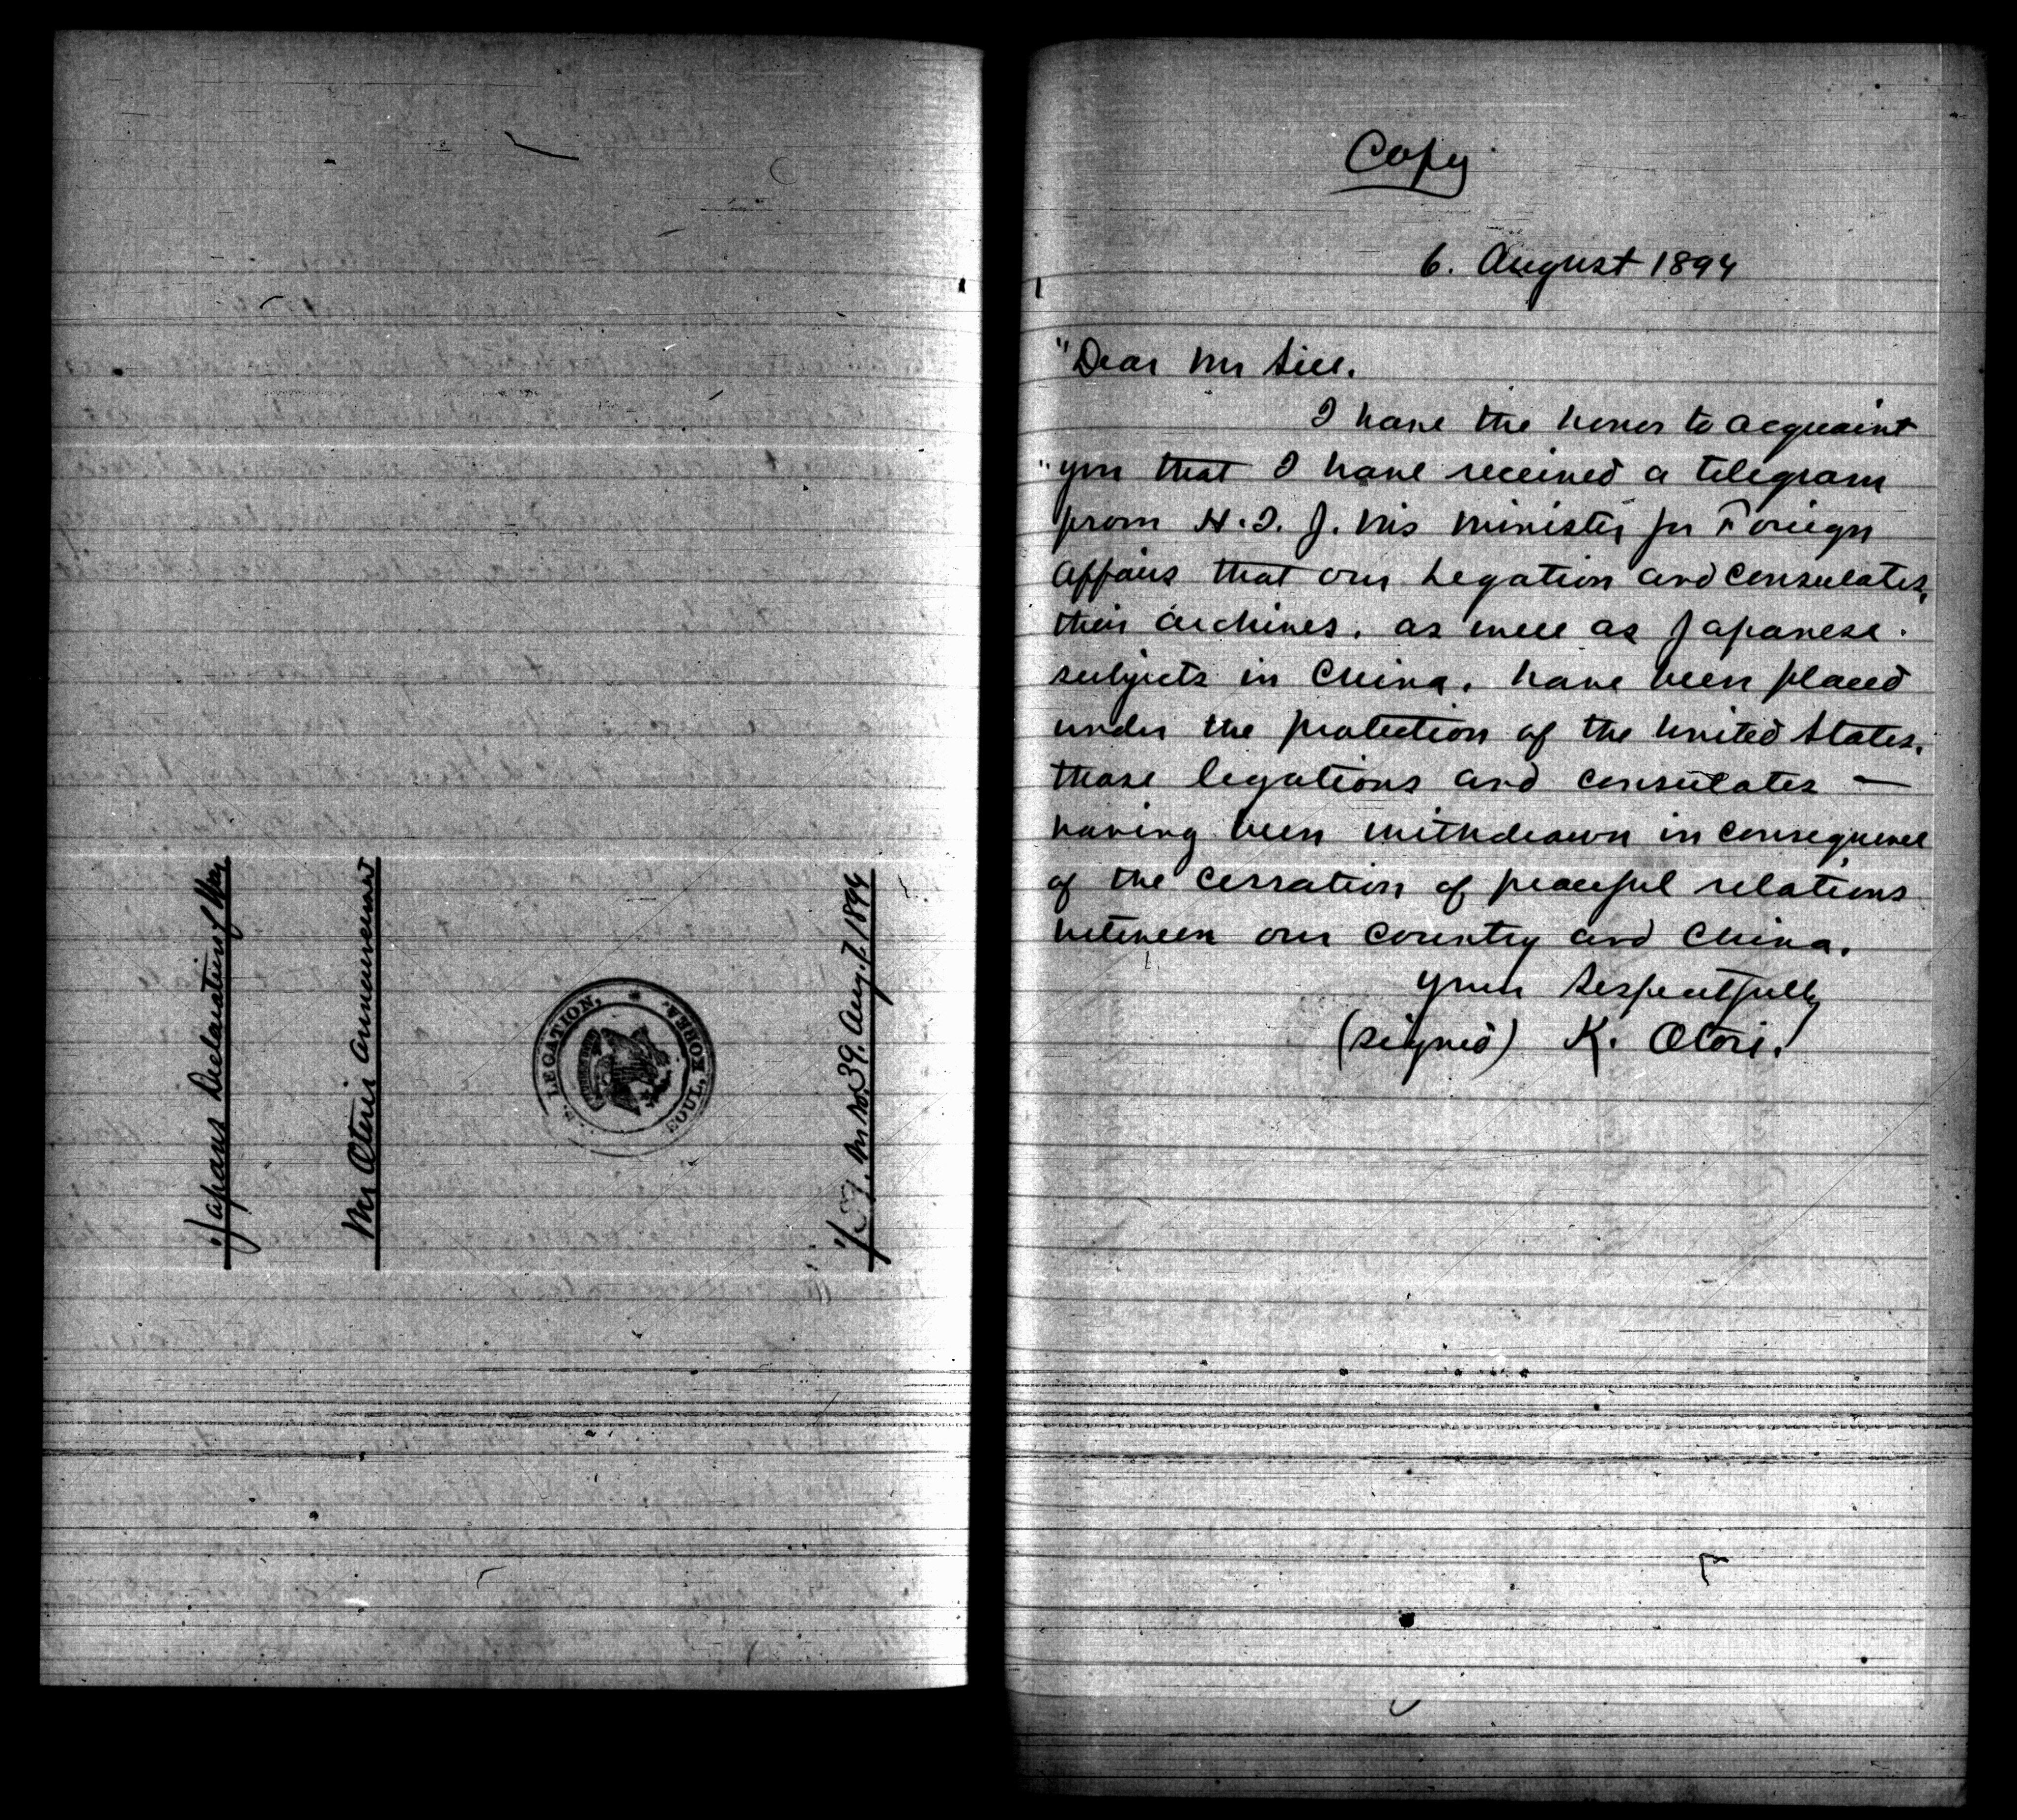 Japans Declaration of War
Mr Otoris Announcement
LEGATION,
SEOUL, KOREA.
No. 39. Aug. 7. 1894
Copy
6. August 1894
"Dear Mr Sill.
I have the honor to acquaint
"you that I have received a telegram
from H. I. J. M's Minister for Foreign
Affairs that our Legation and Consulates,
their archives, as well as Japanese
subjects in China, have been placed
under the protection of the United States,
those legations and consulates —
having been withdrawn in consequence
of the cessation of peaceful relations
between our country and China.
Yours Respectfully
(signed) K. Otori.